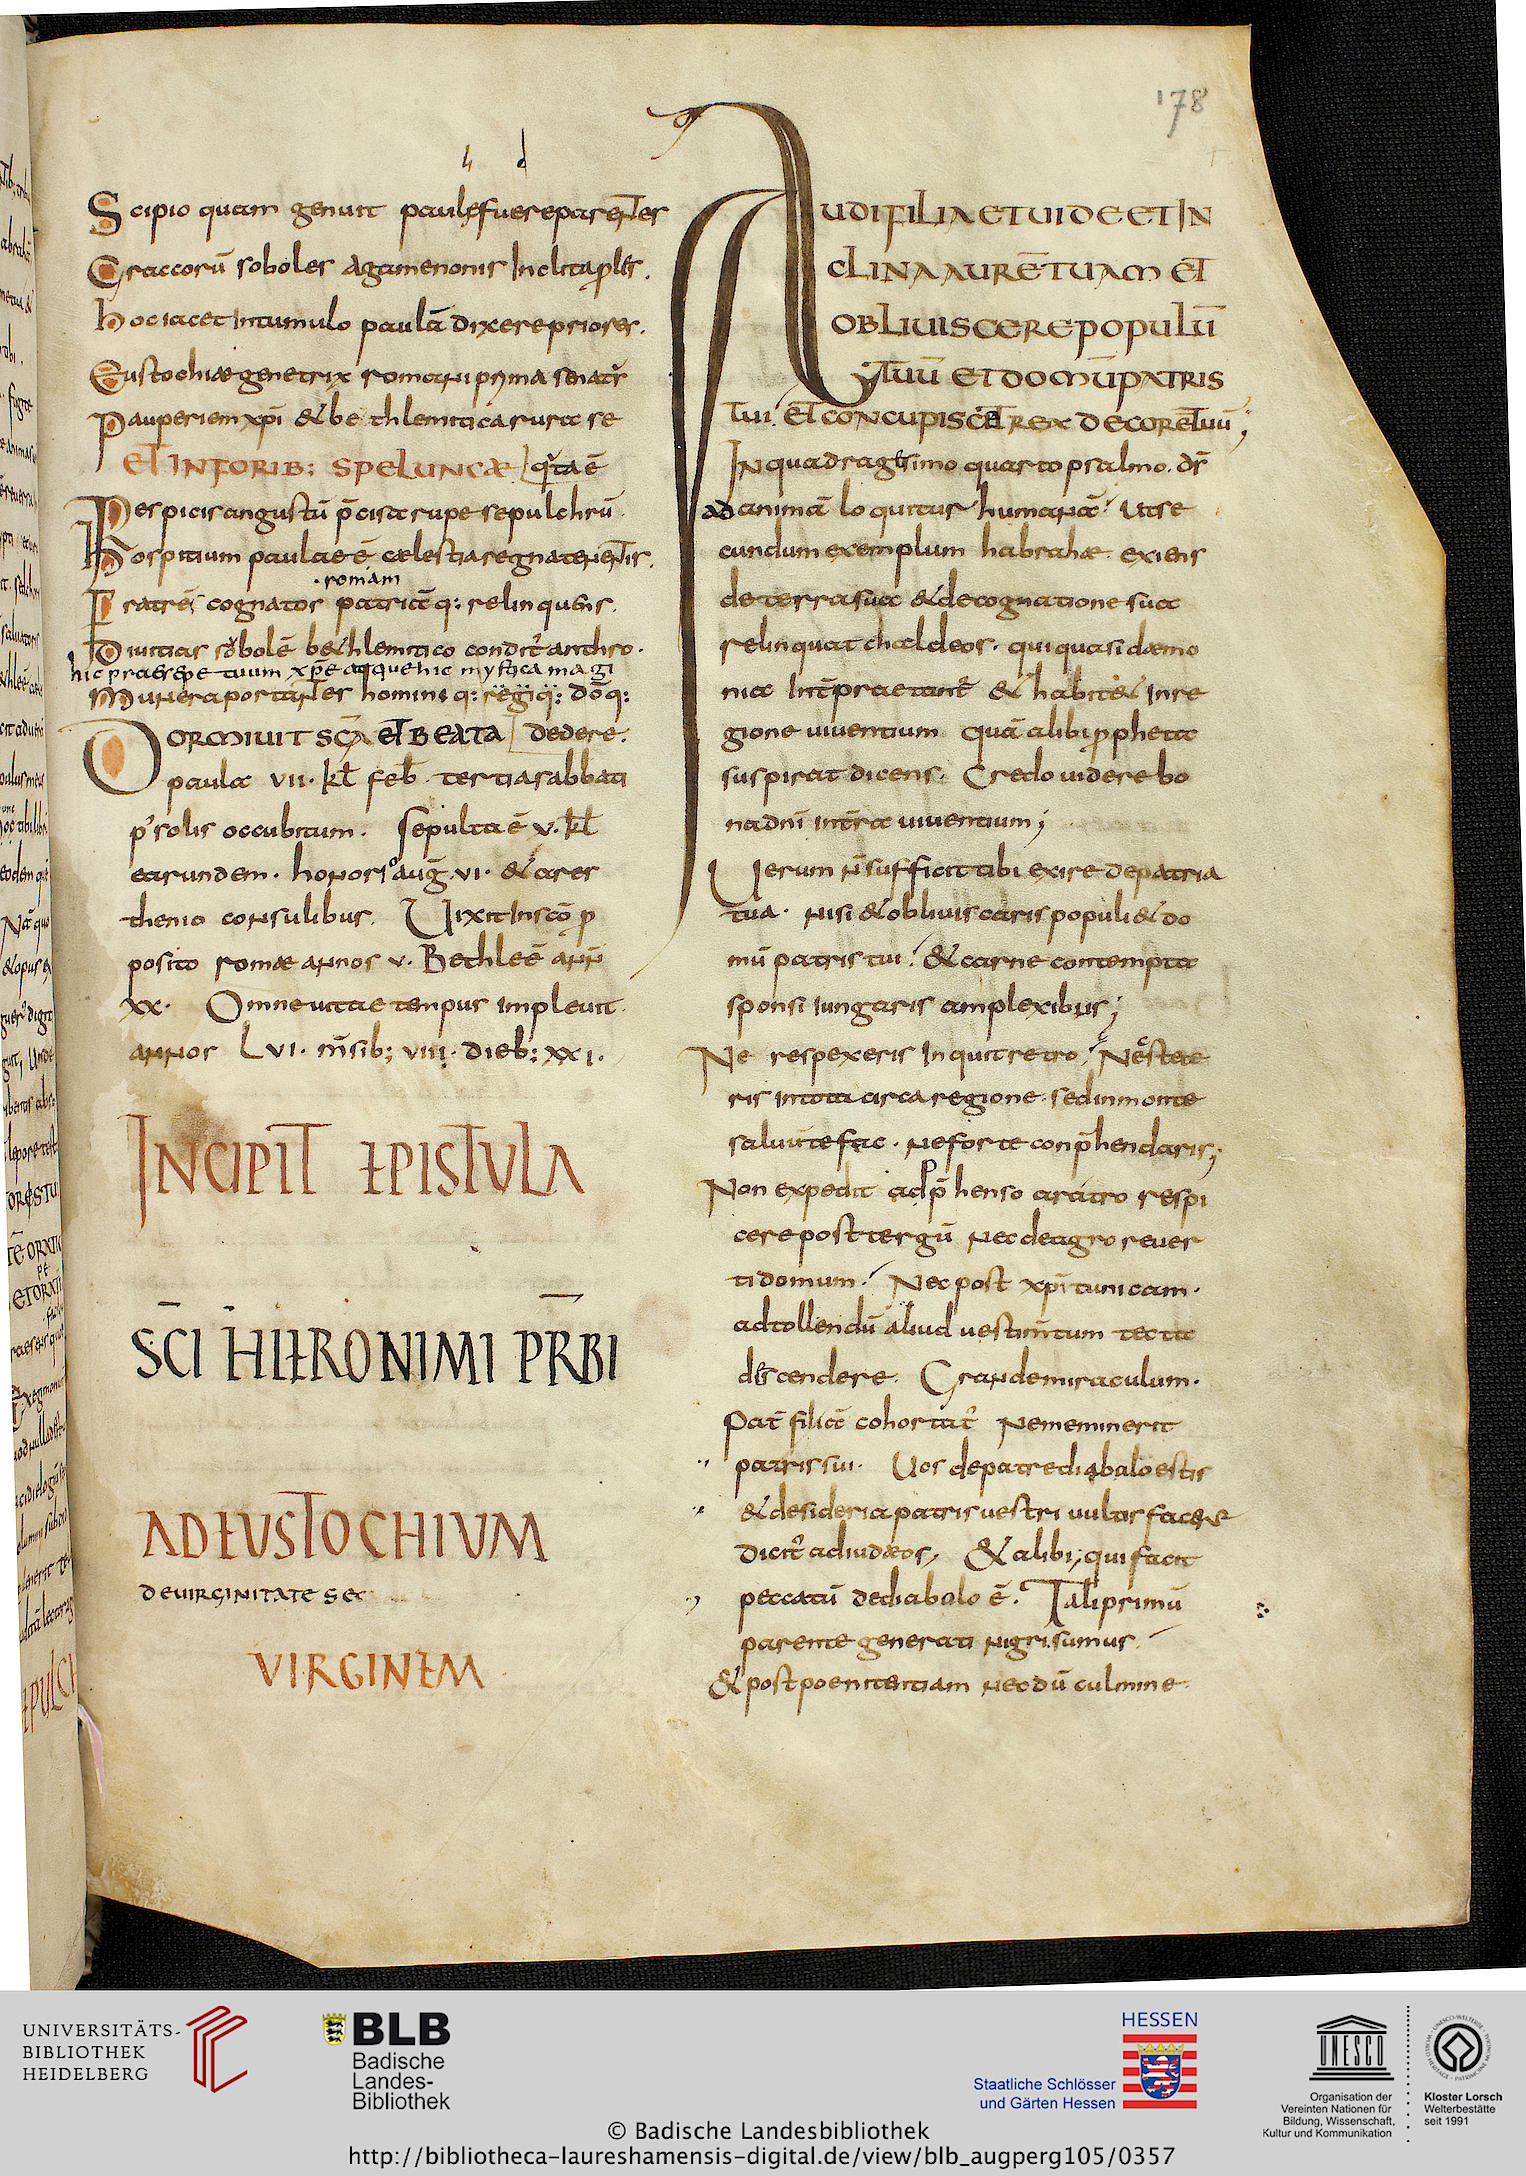 178
Scipio quam genuit paulę fuere parentes
Graccorū soboles agamenonis Inclita ꝓles.
hoc iacet In tumulo paulā dixere priores.
Eustochiæ genetrix romani prima senat᾽
Pauperiem xp̄i & bethlemitica rura se
ET IN FORIB: SPELUNCÆ q̄ta ē
Perspicis angustū p̄cisa rupe sepulchrū
Hospitium paulae ē cælestia regna tenentis.
romam
Fratrē cognatos patriā q: relinquens.
Diuitias sobolē bethlemitico condit᾽ anthro.
hic praesepe tuum xp̄e atque hic mystica magi
Munera portantes homini q: regi q: dō q:
DORMIUIT SC̄A ET BEATA dedere.
paula VII. kł feb̄. tertia sabbati
p᾽ solis occubitum. Sepulta ē V. kł
earundem. honorio aug̅. VI. & ares
thenio consulibus. Uixit In sc̄o ꝓ
posito romæ annos V. Bethleē ann̄
XX. Omne uitae tempus impleuit
annos LVI. m̄sib; VIII. dieb; XXI.
INCIPIT EPISTULA
SC̄I HIERONIMI PR̄BI
AD EUSTOCHIUM
DE UIRGINITATE SER
VIRGINEM
AUDI FILIA ET UIDE ET IN
CLINA AURĒ TUAM ET
OBLIUISCERE POPULŪ
TUŪ ET DOMŪ PATRIS
TUI. ET CONCUPISCET REX DECORĒ TUŪ;
In quadragesimo quarto psalmo. dš
ad animā loquitur humanā. Ut se
cundum exemplum habrahæ. exiens
de terra sua & de cognatione sua
relinquat chaldeos. qui quasi dæmo
nia Int̄praetant᾽ & habitet In re
gione uiuentium quā alibi ꝓpheta
suspirat dicens. Credo uidere bo
na dn̄i in t̄ra uiuentium;
Uerum n̄ sufficit tibi exire de patria
tua. nisi & obliuiscaris populi & do
mū patris tui. & carne contempta
sponsi iungaris amplexibus;
Ne respexeris Inquit retro. Nec stete
ris in tota circa regione. sed in monte
saluū te fac. ne forte conp̄hendaris;
Non expedit adp̄henso aratro respi
cere post tergū nec de agro reuer
ti domum. Nec post xp̄i tunicam.
ad tollendū aliud uestim̄tum tecta
descendere. Grande miraculum.
Pat̄ filiā cohortat᾽ ne memineris
patris sui. Uos de patre diabalo estis
& desideria patris uestri uultis facere
Dicit᾽ ad iudæos, & alibi; qui facit
peccatū de diabalo ē. Tali primū
parente generati nigri sumus.
& post poenitentiam necdū culmine
UNIVERSITÄTS-
BIBLIOTHEK
HEIDELBERG
BLB
Badische
Landes-
Bibliothek
HESSEN
Staatliche Schlösser
und Gärten Hessen
UNESCO
Organisation der
Vereinten Nationen für
Bildung, Wissenschaft,
Kultur und Kommunikation
Kloster Lorsch
Welterbestätte
seit 1991
© Badische Landesbibliothek
http://bibliotheca-laureshamensis-digital.de/view/blb_augperg105/0357